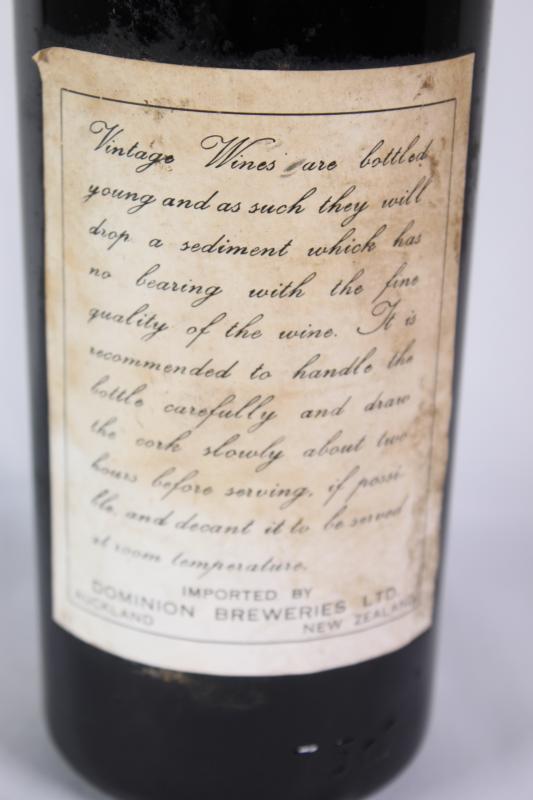 Vintage Wines are bottled
young and as such they will
drop a sediment which has
no bearing with the fine
quality of the wine. It is
recommended to handle the
bottle carefully and draw
the cork slowly about two
hours before serving, if possi-
ble, and decant it to be served
at room temperature.
IMPORTED BY
DOMINION BREWERIES LTD.
AUCKLAND NEW ZEALAND